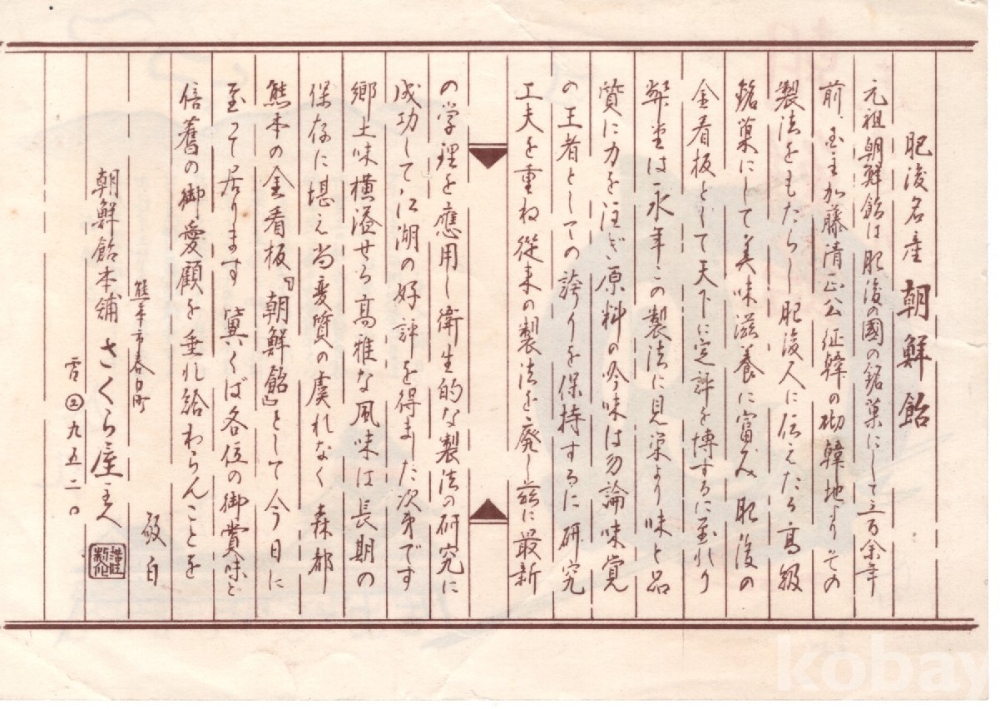 肥後名産 朝鮮飴
元祖朝鮮飴は肥後の國の銘菓にして三百余年
前、国主加藤清正公征韓の砌韓地よりその
製法をもたらし肥後人に伝えたる高級
銘菓にして美味滋養に富み 肥後の
金看板として天下に定評を博するに至れり
弊堂は永年この製法に見栄より味と品
質に力を注ぎ原料の吟味は勿論味覚
の王者としての誇りを保持するに研究
工夫を重ね從来の製法を廃し茲に最新
の学理を應用し衛生的な製法の研究に
成功して江湖の好評を得ました次第です
郷土味横溢せる高雅な風味は長期の
保存に堪え尚変質の虞れなく 森都
熊本の金看板『朝鮮飴』として今日に
至って居ります 冀くば各位の御賞味と
倍舊の御愛顧を垂れ給わらんことを
敬白
熊本市春日町
朝鮮飴本舗 さくら屋主人
電②九五二〇
kobay